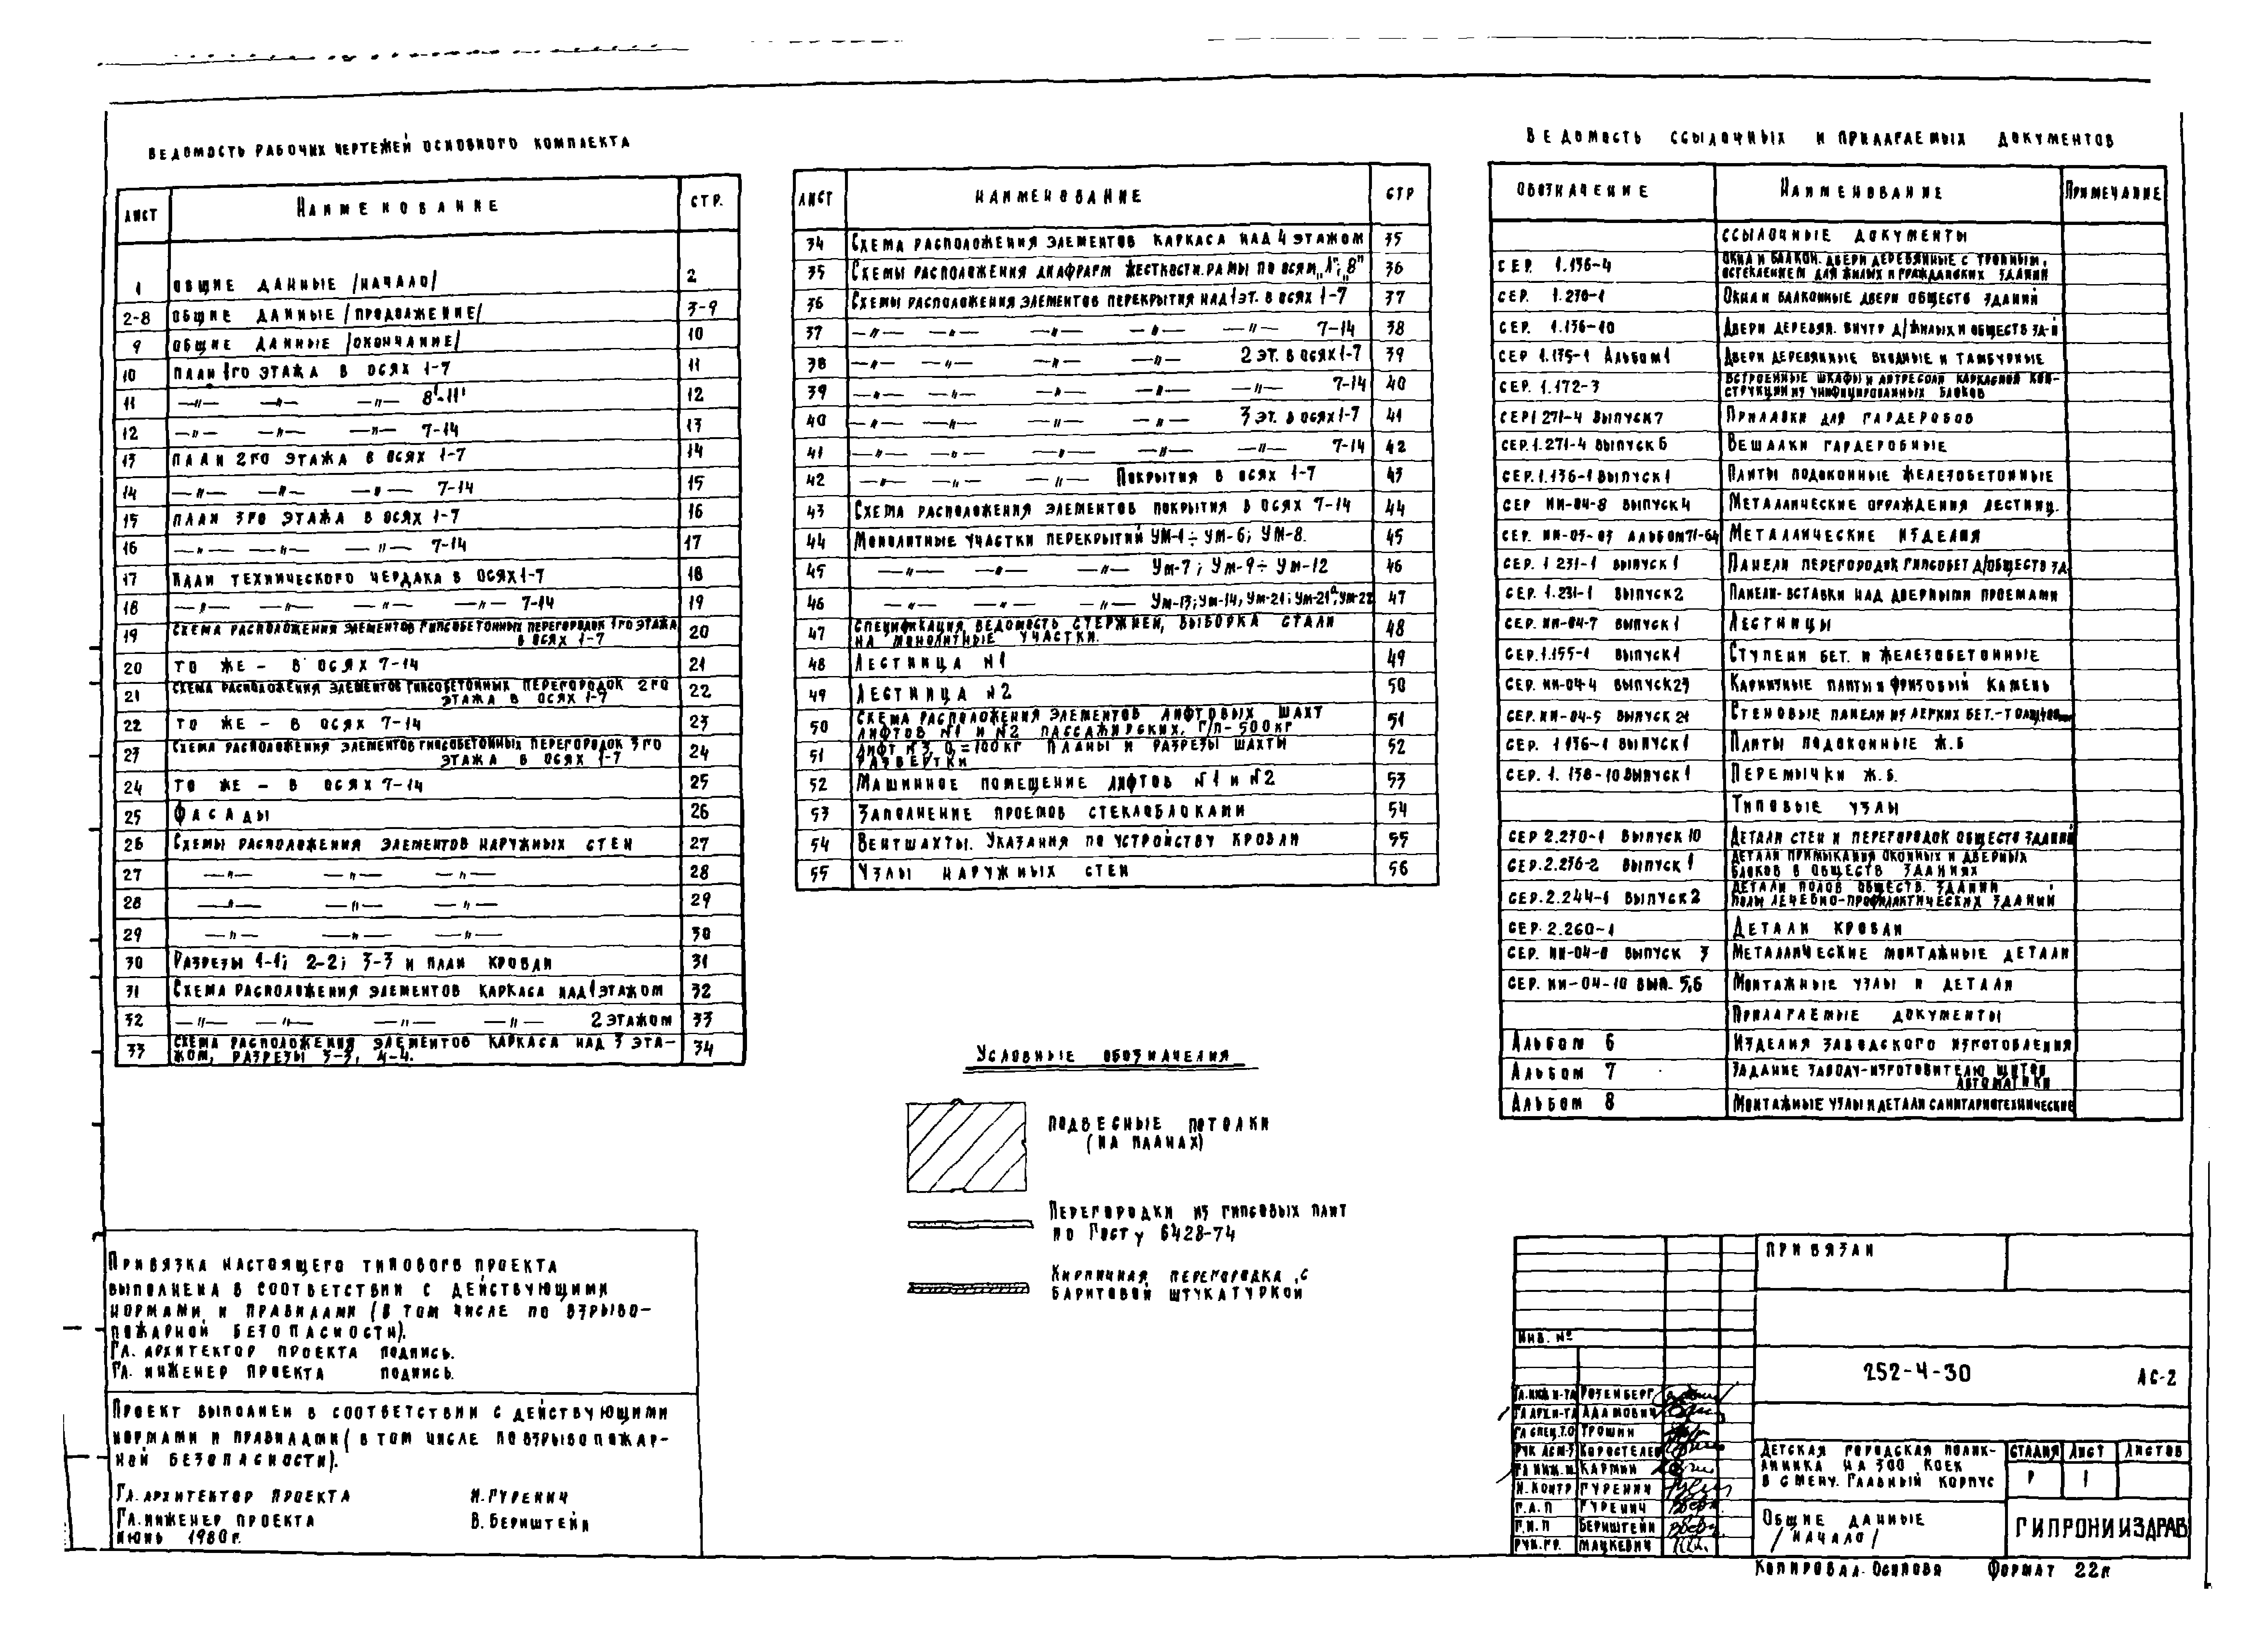 ВЕДОМОСТЬ РАБОЧИХ ЧЕРТЕЖЕЙ ОСНОВНОГО КОМПЛЕКТА
ЛИСТ НАИМЕНОВАНИЕ СТР.
1 ОБЩИЕ ДАННЫЕ /НАЧАЛО/ 2
2-8 ОБЩИЕ ДАННЫЕ /ПРОДОЛЖЕНИЕ/ 3-9
9 ОБЩИЕ ДАННЫЕ /ОКОНЧАНИЕ/ 10
10 ПЛАН 1ГО ЭТАЖА В ОСЯХ 1-7 11
11 —„— —„— —„— 8'-11' 12
12 —„— —„— —„— 7-14 13
13 ПЛАН 2ГО ЭТАЖА В ОСЯХ 1-7 14
14 —„— —„— —„— 7-14 15
15 ПЛАН 3ГО ЭТАЖА В ОСЯХ 1-7 16
16 —„— —„— —„— 7-14 17
17 ПЛАН ТЕХНИЧЕСКОГО ЧЕРДАКА В ОСЯХ 1-7 18
18 —„— —„— —„— —„— 7-14 19
19 СХЕМА РАСПОЛОЖЕНИЯ ЭЛЕМЕНТОВ ГИПСОБЕТОННЫХ ПЕРЕГОРОДОК 1ГО ЭТАЖА
В ОСЯХ 1-7 20
20 ТО ЖЕ - В ОСЯХ 7-14 21
21 СХЕМА РАСПОЛОЖЕНИЯ ЭЛЕМЕНТОВ ГИПСОБЕТОННЫХ ПЕРЕГОРОДОК 2ГО
ЭТАЖА В ОСЯХ 1-7 22
22 ТО ЖЕ - В ОСЯХ 7-14 23
23 СХЕМА РАСПОЛОЖЕНИЯ ЭЛЕМЕНТОВ ГИПСОБЕТОННЫХ ПЕРЕГОРОДОК 3ГО
ЭТАЖА В ОСЯХ 1-7 24
24 ТО ЖЕ - В ОСЯХ 7-14 25
25 ФАСАДЫ 26
26 СХЕМЫ РАСПОЛОЖЕНИЯ ЭЛЕМЕНТОВ НАРУЖНЫХ СТЕН 27
27 —„— —„— —„— 28
28 —„— —„— —„— 29
29 —„— —„— —„— 30
30 РАЗРЕЗЫ 1-1; 2-2; 3-3 И ПЛАН КРОВЛИ 31
31 СХЕМА РАСПОЛОЖЕНИЯ ЭЛЕМЕНТОВ КАРКАСА НАД 1 ЭТАЖОМ 32
32 —„— —„— —„— —„— 2 ЭТАЖОМ 33
33 СХЕМА РАСПОЛОЖЕНИЯ ЭЛЕМЕНТОВ КАРКАСА НАД 3 ЭТА-
ЖОМ, РАЗРЕЗЫ 3-3, 4-4. 34
ЛИСТ НАИМЕНОВАНИЕ СТР
34 СХЕМА РАСПОЛОЖЕНИЯ ЭЛЕМЕНТОВ КАРКАСА НАД 4 ЭТАЖОМ 35
35 СХЕМЫ РАСПОЛОЖЕНИЯ ДИАФРАГМ ЖЕСТКОСТИ. РАМЫ ПО ОСЯМ „А"; „В" 36
36 СХЕМЫ РАСПОЛОЖЕНИЯ ЭЛЕМЕНТОВ ПЕРЕКРЫТИЯ НАД 1 ЭТ. В ОСЯХ 1-7 37
37 —„— —„— —„— —„— —„— 7-14 38
38 —„— —„— —„— —„— 2 ЭТ. В ОСЯХ 1-7 39
39 —„— —„— —„— —„— —„— 7-14 40
40 —„— —„— —„— —„— 3 ЭТ. В ОСЯХ 1-7 41
41 —„— —„— —„— —„— —„— 7-14 42
42 —„— —„— —„— ПОКРЫТИЯ В ОСЯХ 1-7 43
43 СХЕМА РАСПОЛОЖЕНИЯ ЭЛЕМЕНТОВ ПОКРЫТИЯ В ОСЯХ 7-14 44
44 МОНОЛИТНЫЕ УЧАСТКИ ПЕРЕКРЫТИЙ УМ-1÷УМ-6; УМ-8. 45
45 —„— —„— —„— УМ-7; УМ-9÷УМ-12 46
46 —„— —„— —„— УМ-13; УМ-14, УМ-21; УМ-21а, УМ-22 47
47 СПЕЦИФИКАЦИЯ, ВЕДОМОСТЬ СТЕРЖНЕЙ, ВЫБОРКА СТАЛИ
НА МОНОЛИТНЫЕ УЧАСТКИ. 48
48 ЛЕСТНИЦА N1 49
49 ЛЕСТНИЦА N2 50
50 СХЕМА РАСПОЛОЖЕНИЯ ЭЛЕМЕНТОВ ЛИФТОВЫХ ШАХТ
ЛИФТОВ N1 И N2 ПАССАЖИРСКИХ, Г/П- 500 КГ 51
51 ЛИФТ N3, Q=100 КГ ПЛАНЫ И РАЗРЕЗЫ ШАХТЫ
РАЗВЕРТКИ 52
52 МАШИННОЕ ПОМЕЩЕНИЕ ЛИФТОВ N1 И N2 53
53 ЗАПОЛНЕНИЕ ПРОЕМОВ СТЕКЛОБЛОКАМИ 54
54 ВЕНТШАХТЫ. УКАЗАНИЯ ПО УСТРОЙСТВУ КРОВЛИ 55
55 УЗЛЫ НАРУЖНЫХ СТЕН 56
ВЕДОМОСТЬ ССЫЛОЧНЫХ И ПРИЛАГАЕМЫХ ДОКУМЕНТОВ
ОБОЗНАЧЕНИЕ НАИМЕНОВАНИЕ ПРИМЕЧАНИЕ
ССЫЛОЧНЫЕ ДОКУМЕНТЫ
СЕР. 1.136-4 ОКНА И БАЛКОН. ДВЕРИ ДЕРЕВЯННЫЕ С ТРОЙНЫМ,
ОСТЕКЛЕНИЕМ ДЛЯ ЖИЛЫХ И ГРАЖДАНСКИХ ЗДАНИЙ
СЕР. 1.236-1 ОКНА И БАЛКОННЫЕ ДВЕРИ ОБЩЕСТВ ЗДАНИЙ
СЕР. 1.136-10 ДВЕРИ ДЕРЕВЯН. ВНУТР Д/ЖИЛЫХ И ОБЩЕСТВ ЗД-Й
СЕР 1.135-1 АЛЬБОМ 1 ДВЕРИ ДЕРЕВЯННЫЕ ВХОДНЫЕ И ТАМБУРНЫЕ
СЕР. 1.172-3 ВСТРОЕННЫЕ ШКАФЫ И АНТРЕСОЛИ КАРКАСНОЙ КОН-
СТРУКЦИИ ИЗ УНИФИЦИРОВАННЫХ БЛОКОВ
СЕР 1 271-4 ВЫПУСК 7 ПРИЛАВКИ ДЛЯ ГАРДЕРОБОВ
СЕР. 1.271-4 ВЫПУСК 6 ВЕШАЛКИ ГАРДЕРОБНЫЕ
СЕР. 1.136-1 ВЫПУСК 1 ПЛИТЫ ПОДОКОННЫЕ ЖЕЛЕЗОБЕТОННЫЕ
СЕР ИИ-04-8 ВЫПУСК 4 МЕТАЛЛИЧЕСКИЕ ОГРАЖДЕНИЯ ЛЕСТНИЦ.
СЕР. ИИ-03-03 АЛЬБОМ 71-64 МЕТАЛЛИЧЕСКИЕ ИЗДЕЛИЯ
СЕР. 1 231-1 ВЫПУСК 1 ПАНЕЛИ ПЕРЕГОРОДОК ГИПСОБЕТ Д/ОБЩЕСТВ ЗД
СЕР. 1.231-1 ВЫПУСК 2 ПАНЕЛИ-ВСТАВКИ НАД ДВЕРНЫМИ ПРОЕМАМИ
СЕР. ИИ-04-7 ВЫПУСК 1 ЛЕСТНИЦЫ
СЕР. 1.155-1 ВЫПУСК 1 СТУПЕНИ БЕТ. И ЖЕЛЕЗОБЕТОННЫЕ
СЕР. ИИ-04-4 ВЫПУСК 23 КАРНИЗНЫЕ ПЛИТЫ И ФРИЗОВЫЙ КАМЕНЬ
СЕР. ИИ-04-5 ВЫПУСК 21 СТЕНОВЫЕ ПАНЕЛИ ИЗ ЛЕГКИХ БЕТ.-
СЕР. 1 136-1 ВЫПУСК 1 ПЛИТЫ ПОДОКОННЫЕ Ж.Б
СЕР. 1. 138-10 ВЫПУСК 1 ПЕРЕМЫЧКИ Ж.Б.
ТИПОВЫЕ УЗЛЫ
СЕР 2.230-1 ВЫПУСК 10 ДЕТАЛИ СТЕН И ПЕРЕГОРОДОК ОБЩЕСТВ ЗДАНИЙ
СЕР. 2.236-2 ВЫПУСК 1 ДЕТАЛИ ПРИМЫКАНИЯ ОКОННЫХ И ДВЕРНЫХ
БЛОКОВ В ОБЩЕСТВ ЗДАНИЯХ
СЕР. 2.244-1 ВЫПУСК 2 ДЕТАЛИ ПОЛОВ ОБЩЕСТВ. ЗДАНИЙ
ПОЛЫ ЛЕЧЕБНО-ПРОФИЛАКТИЧЕСКИХ ЗДАНИЙ
СЕР. 2.260-1 ДЕТАЛИ КРОВЛИ
СЕР. ИИ-04-0 ВЫПУСК 3 МЕТАЛЛИЧЕСКИЕ МОНТАЖНЫЕ ДЕТАЛИ
СЕР. ИИ-04-10 ВЫП. 5,6 МОНТАЖНЫЕ УЗЛЫ И ДЕТАЛИ
ПРИЛАГАЕМЫЕ ДОКУМЕНТЫ
АЛЬБОМ 6 ИЗДЕЛИЯ ЗАВОДСКОГО ИЗГОТОВЛЕНИЯ
АЛЬБОМ 7 ЗАДАНИЕ ЗАВОДУ-ИЗГОТОВИТЕЛЮ ЩИТОВ
АВТОМАТИКИ
АЛЬБОМ 8 МОНТАЖНЫЕ УЗЛЫ И ДЕТАЛИ САНИТАРНОТЕХНИЧЕСКИЕ
УСЛОВНЫЕ ОБОЗНАЧЕНИЯ
ПОДВЕСНЫЕ ПОТОЛКИ
(НА ПЛАНАХ)
ПЕРЕГОРОДКИ ИЗ ГИПСОВЫХ ПЛИТ
ПО ГОСТ У 6428-74
КИРПИЧНАЯ ПЕРЕГОРОДКА С
БАРИТОВОЙ ШТУКАТУРКОЙ
ПРИВЯЗКА НАСТОЯЩЕГО ТИПОВОГО ПРОЕКТА
ВЫПОЛНЕНА В СООТВЕТСТВИИ С ДЕЙСТВУЮЩИМИ
НОРМАМИ И ПРАВИЛАМИ (В ТОМ ЧИСЛЕ ПО ВЗРЫВО-
ПОЖАРНОЙ БЕЗОПАСНОСТИ).
ГЛ. АРХИТЕКТОР ПРОЕКТА ПОДПИСЬ.
ГЛ. ИНЖЕНЕР ПРОЕКТА ПОДПИСЬ.
ПРОЕКТ ВЫПОЛНЕН В СООТВЕТСТВИИ С ДЕЙСТВУЮЩИМИ
НОРМАМИ И ПРАВИЛАМИ (В ТОМ ЧИСЛЕ ПО ВЗРЫВОПОЖАР-
НОЙ БЕЗОПАСНОСТИ).
ГЛ. АРХИТЕКТОР ПРОЕКТА И. ГУРЕНИЧ
ГЛ. ИНЖЕНЕР ПРОЕКТА В. БЕРНШТЕЙН
ИЮНЬ 1980 г.
ПРИВЯЗАН
ИНВ. №
252-4-30 АС-2
ГЛ. ИНЖ И-ТА РОЗЕНБЕРГ
ГЛ АРХ И-ТА АДАМОВИЧ
ГЛ СПЕЦ. Т.О ТРОШИН
РУК АСМ-3 КОРОСТЕЛЕВ
ГЛ ИНЖ. М. КАРМИН
Н. КОНТР ГУРЕНИЧ
Г. А. П ГУРЕНИЧ
Г. И. П БЕРНШТЕЙН
РУК. ГР. МАЦКЕВИЧ
ДЕТСКАЯ ГОРОДСКАЯ ПОЛИК-
ЛИНИКА НА 300 КОЕК
В СМЕНУ. ГЛАВНЫЙ КОРПУС
СТАДИЯ ЛИСТ ЛИСТОВ
Р 1
ОБЩИЕ ДАННЫЕ
/НАЧАЛО/
ГИПРОНИИЗДРАВ
КОПИРОВАЛ. ОСИПОВА ФОРМАТ 22г